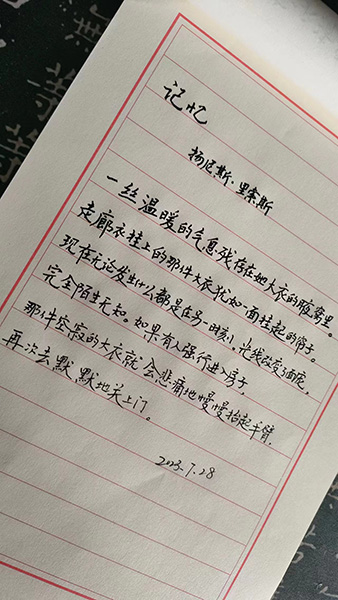 记忆
扬尼斯·里索斯
一丝温暖的气息残存在她大衣的腋窝里。
走廊衣挂上的那件大衣犹如一面挂起的帘子。
现在无论发生什么都是在另一时刻，光线改变了面庞，
完全陌生无知。如果有人强行进入房子，
那件空寂的大衣就会悲痛地慢慢抬起手臂，
再次去默默地关上门。
2023.7.28